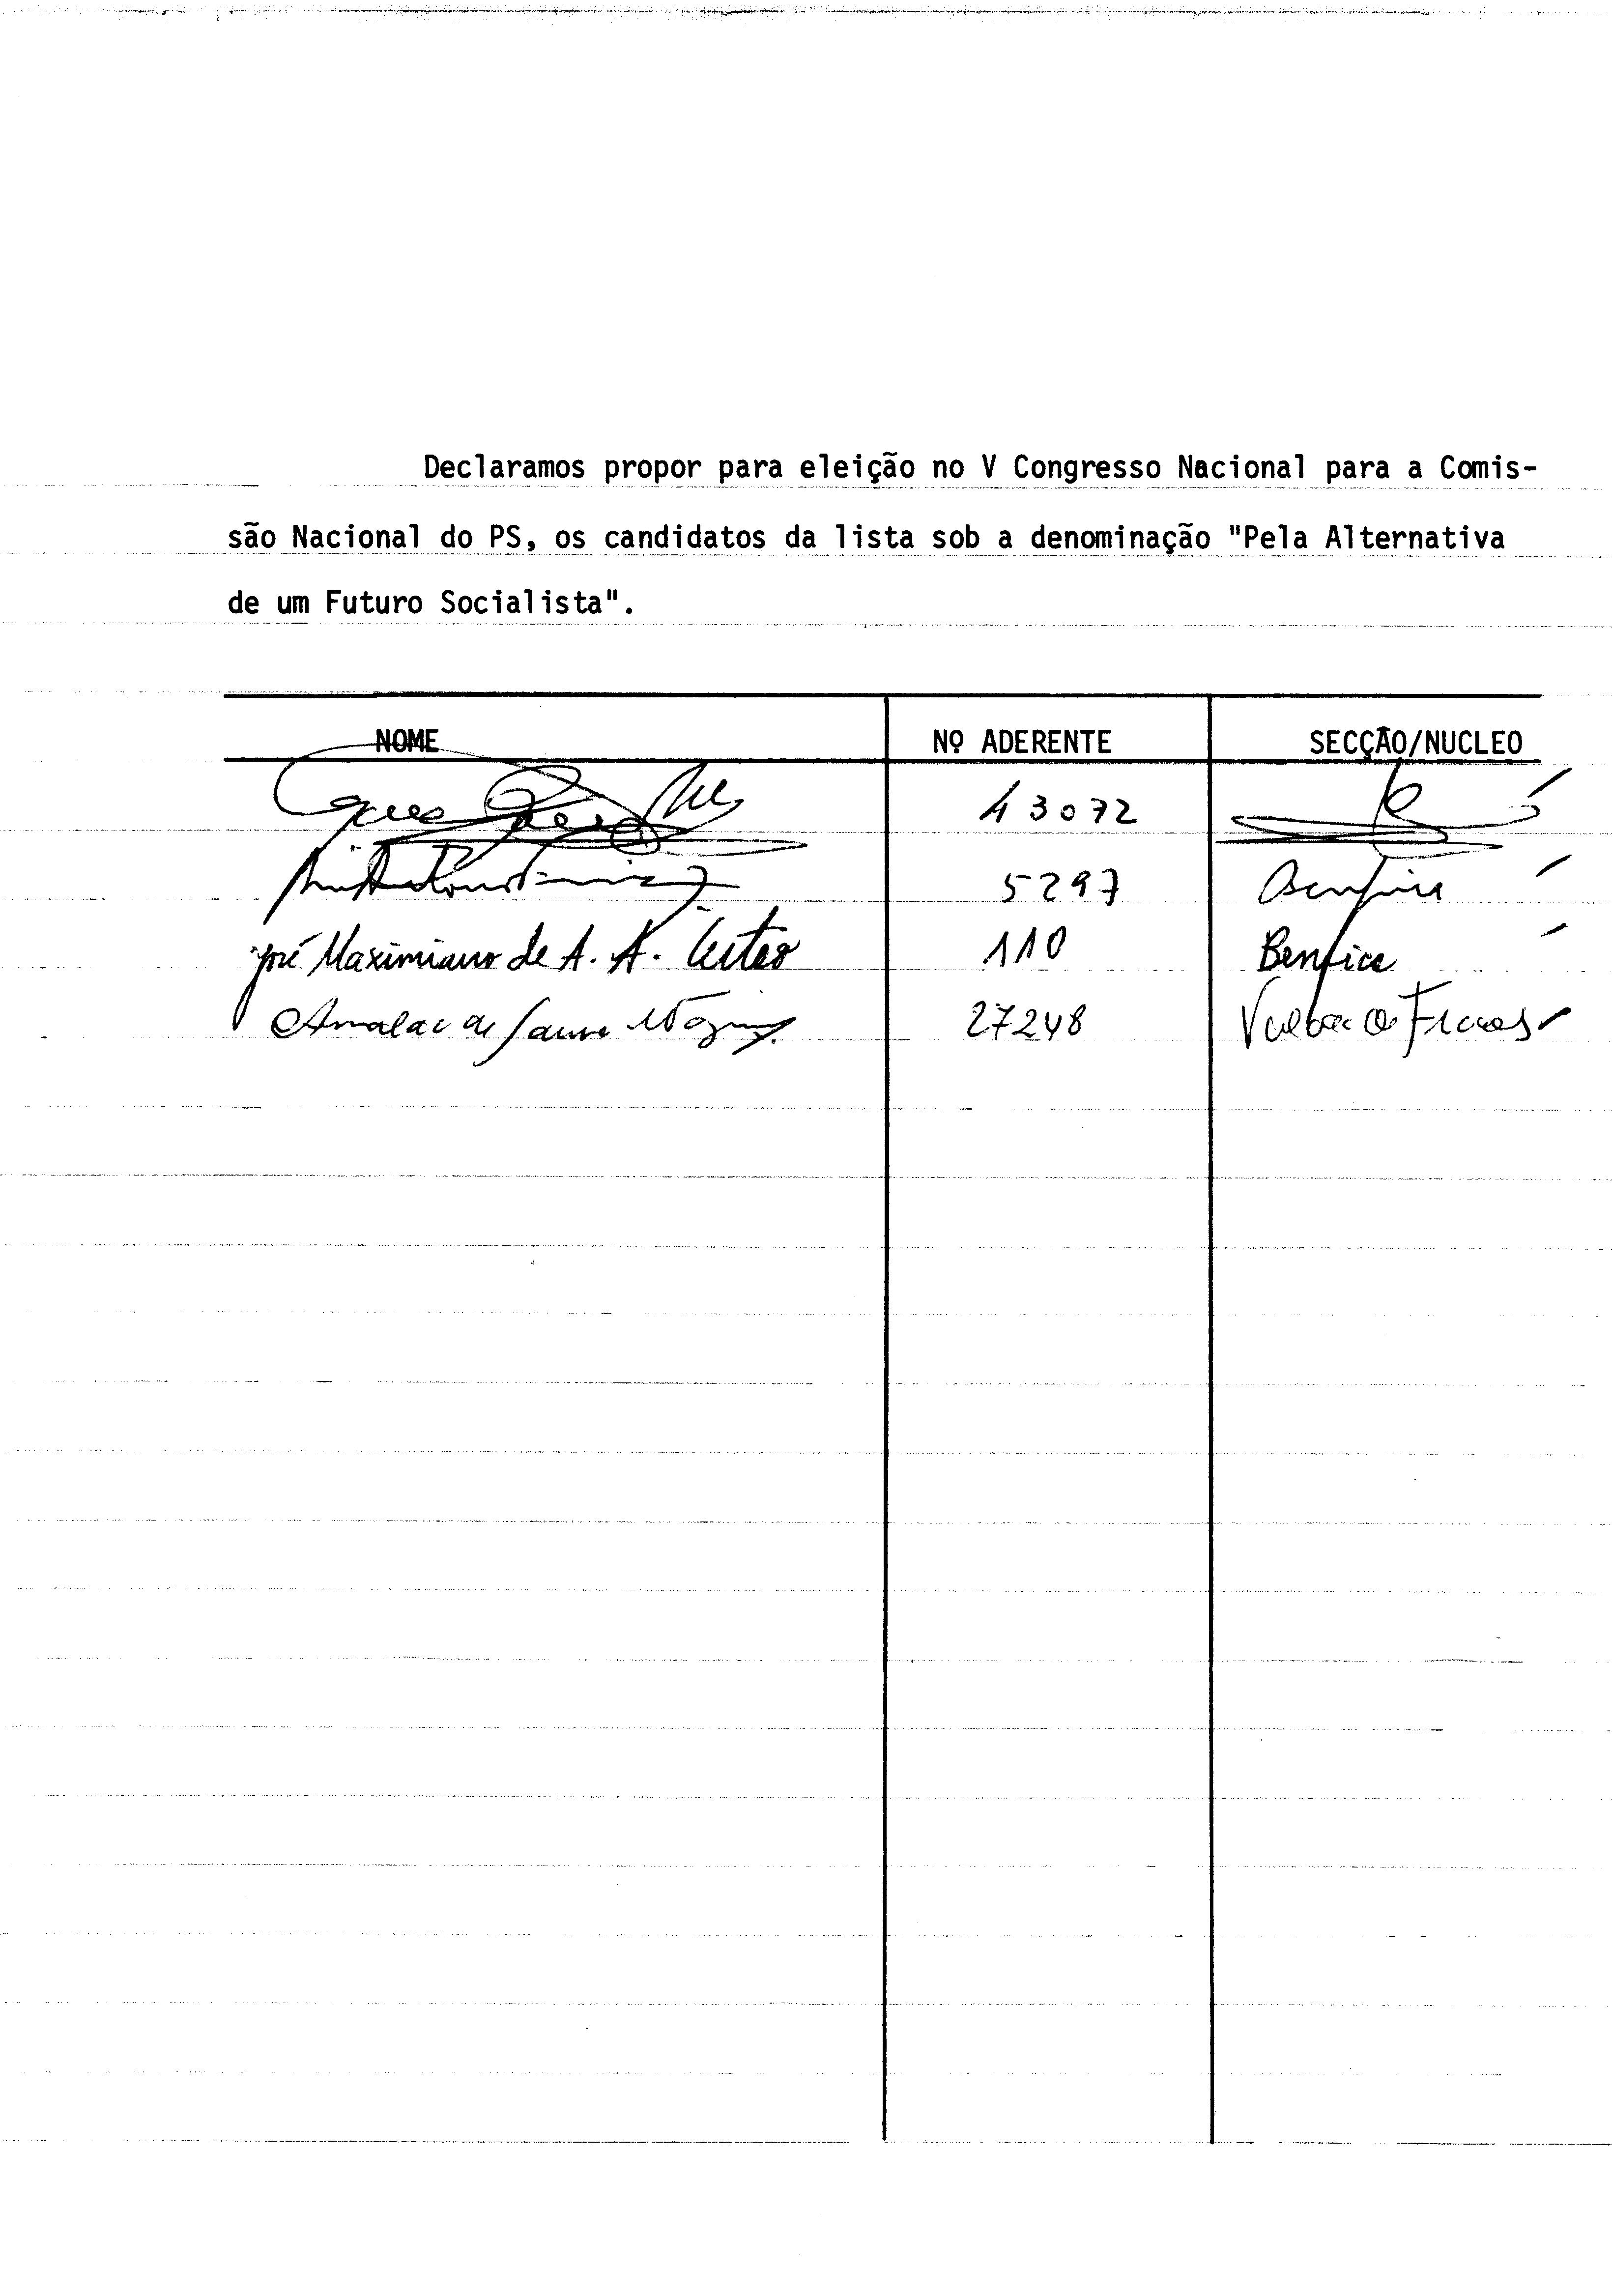 Declaramos propor para eleição no V Congresso Nacional para a Comis-
são Nacional do PS, os candidatos da lista sob a denominação "Pela Alternativa
de um Futuro Socialista".
NOME Nº ADERENTE SECÇÃO/NUCLEO
43072
5297 Benfica
José Maximiano de A. A. Leitão 110 Benfica
de 27248